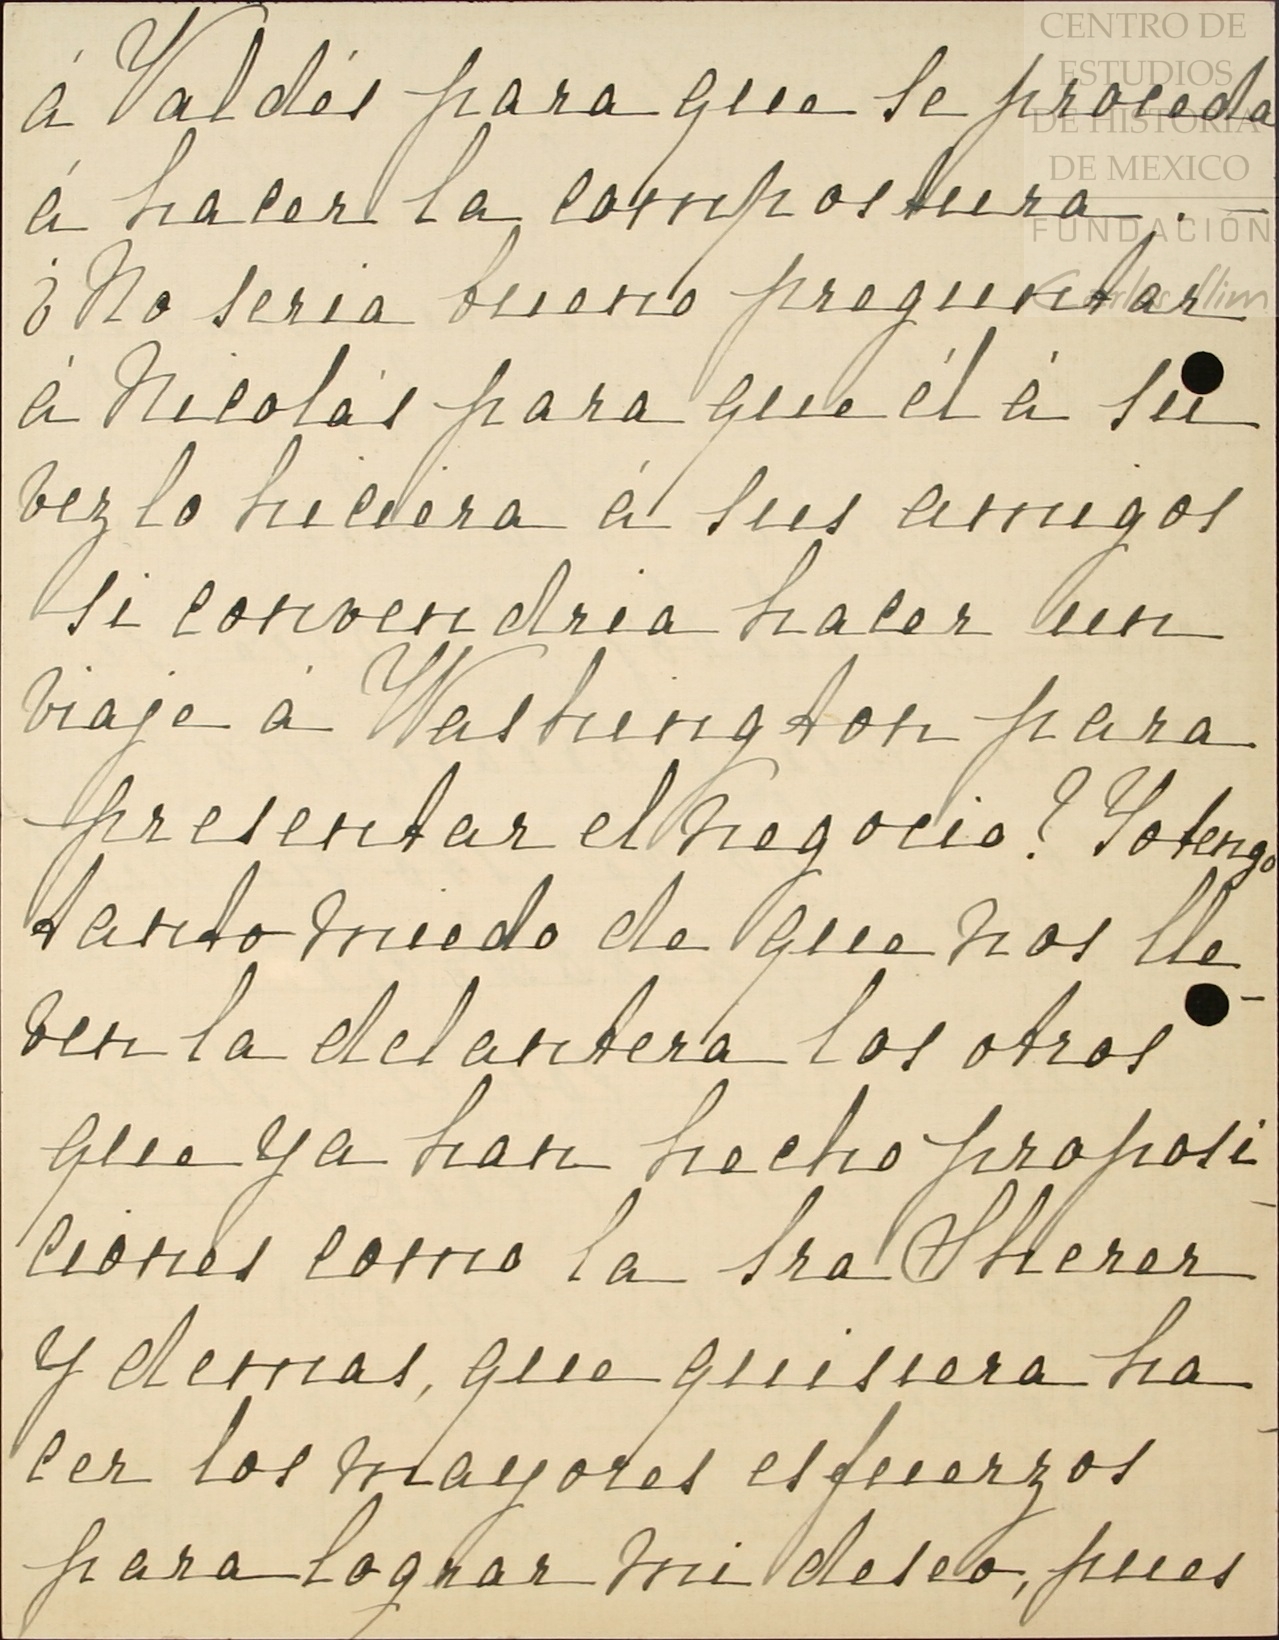 CENTRO DE
ESTUDIOS
DE HISTORIA
DE MEXICO
FUNDACIÓN
Carlos Slim
á Valdés para que se proceda
á hacer la compostura. —
¿No seria bueno preguntar
á Nicolás para que él á su
vez lo hiciera á sus amigos
si convendria hacer un
viaje á Washington para
presentar el negocio? Yo tengo
tanto miedo de que nos lle-
ven la delantera los otros
que ya han hecho proposi-
ciones como la Sra Sherer
y demas, que quisiera ha-
cer los mayores esfuerzos
para lograr mi deseo, pues